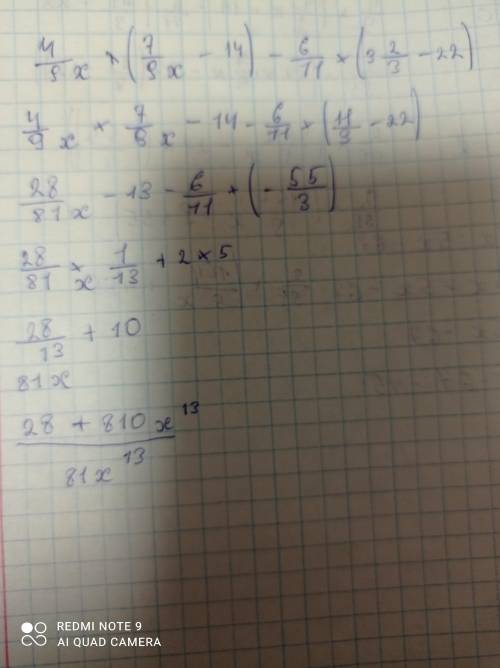 4/9 x × (7/9 x - 14) - 6/11 × (3 2/3 - 22)
4/9 x × 7/9 x - 14 - 6/11 × (11/3 - 22)
28/81 x - 13 - 6/11 × (- 55/3)
28/81 x × 1/13 + 2 × 5
28/81x^13 + 10
28 + 810x^13 / 81x^13
REDMI NOTE 9
AI QUAD CAMERA